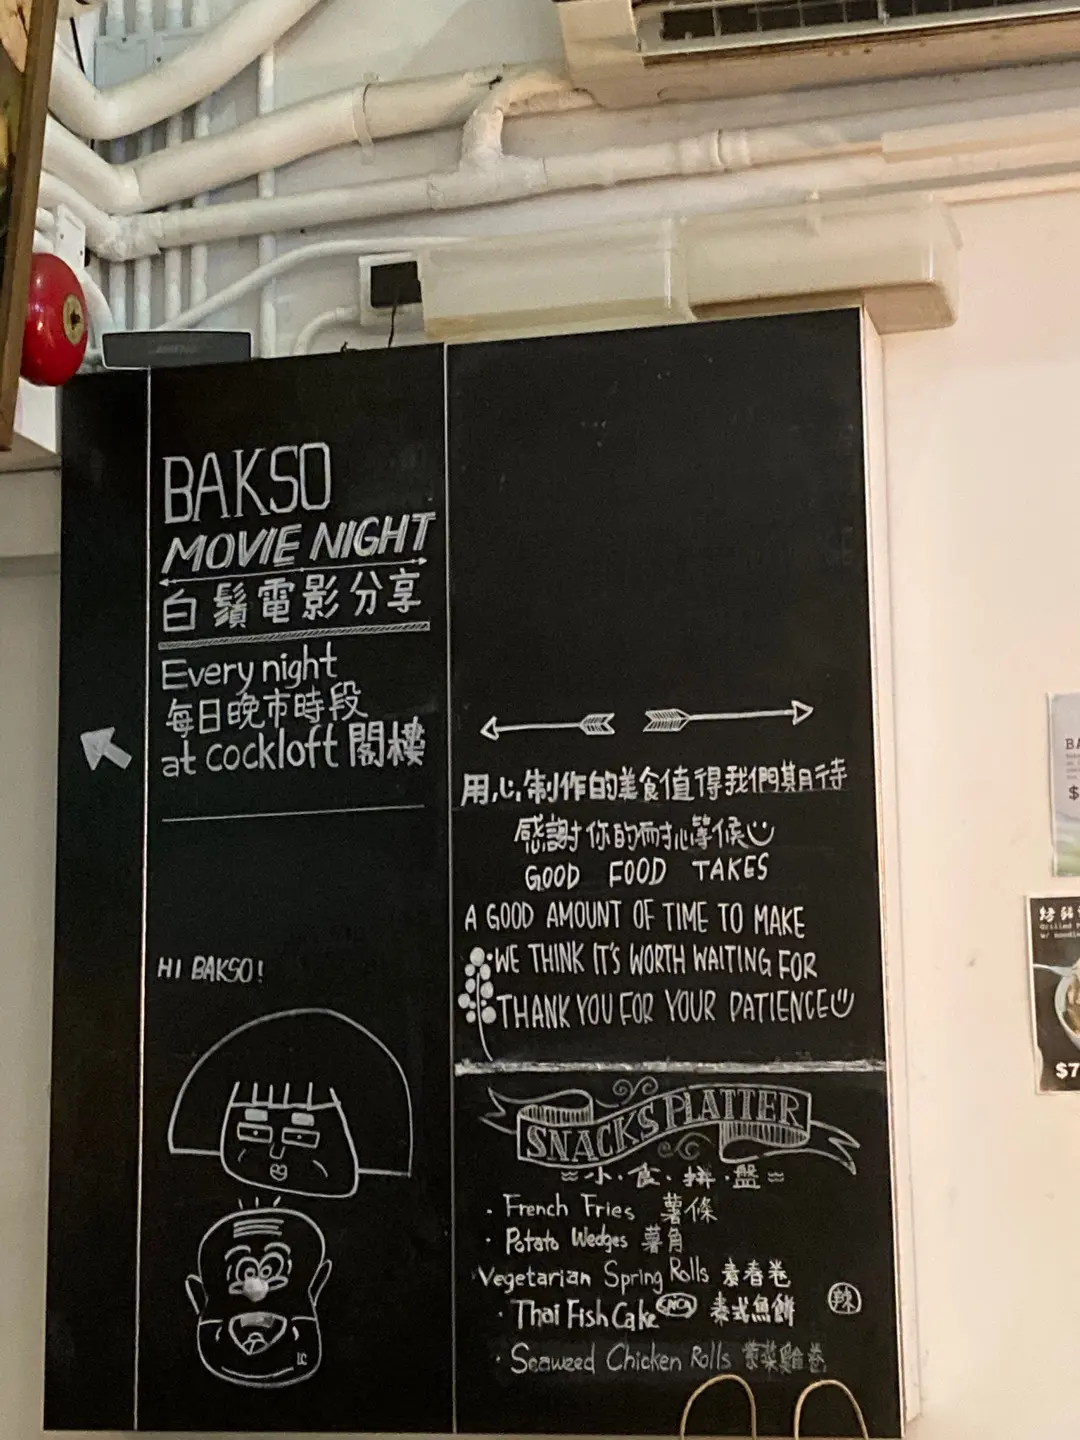 BAKSO
MOVIE NIGHT
白鬚電影分享
Every night
每日晚市時段
at cockloft 閣樓
HI BAKSO!
用心制作的美食值得我們期待
感謝你的耐心等候
GOOD FOOD TAKES
A GOOD AMOUNT OF TIME TO MAKE
WE THINK IT'S WORTH WAITING FOR
THANK YOU FOR YOUR PATIENCE
SNACKS PLATTER
≈小·食·拼·盤≈
· French Fries 薯條
· Potato Wedges 薯角
Vegetarian Spring Rolls 素春卷
· Thai Fish Cake 泰式魚餅 辣
· Seaweed Chicken Rolls 紫菜雞卷
BA
$
$7